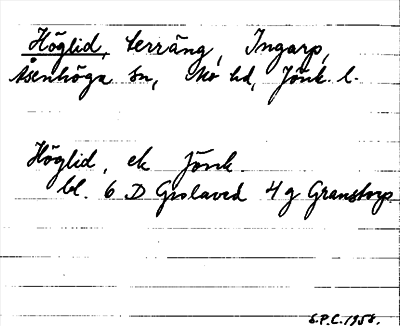 Höglid, terräng, Ingarp,
Åsenhöga sn, Mo hd, Jönk. l.
Höglid, ek Jönk.
bl. 6 D Gislaved 4 g Granstorp
S.P.C. 1958.